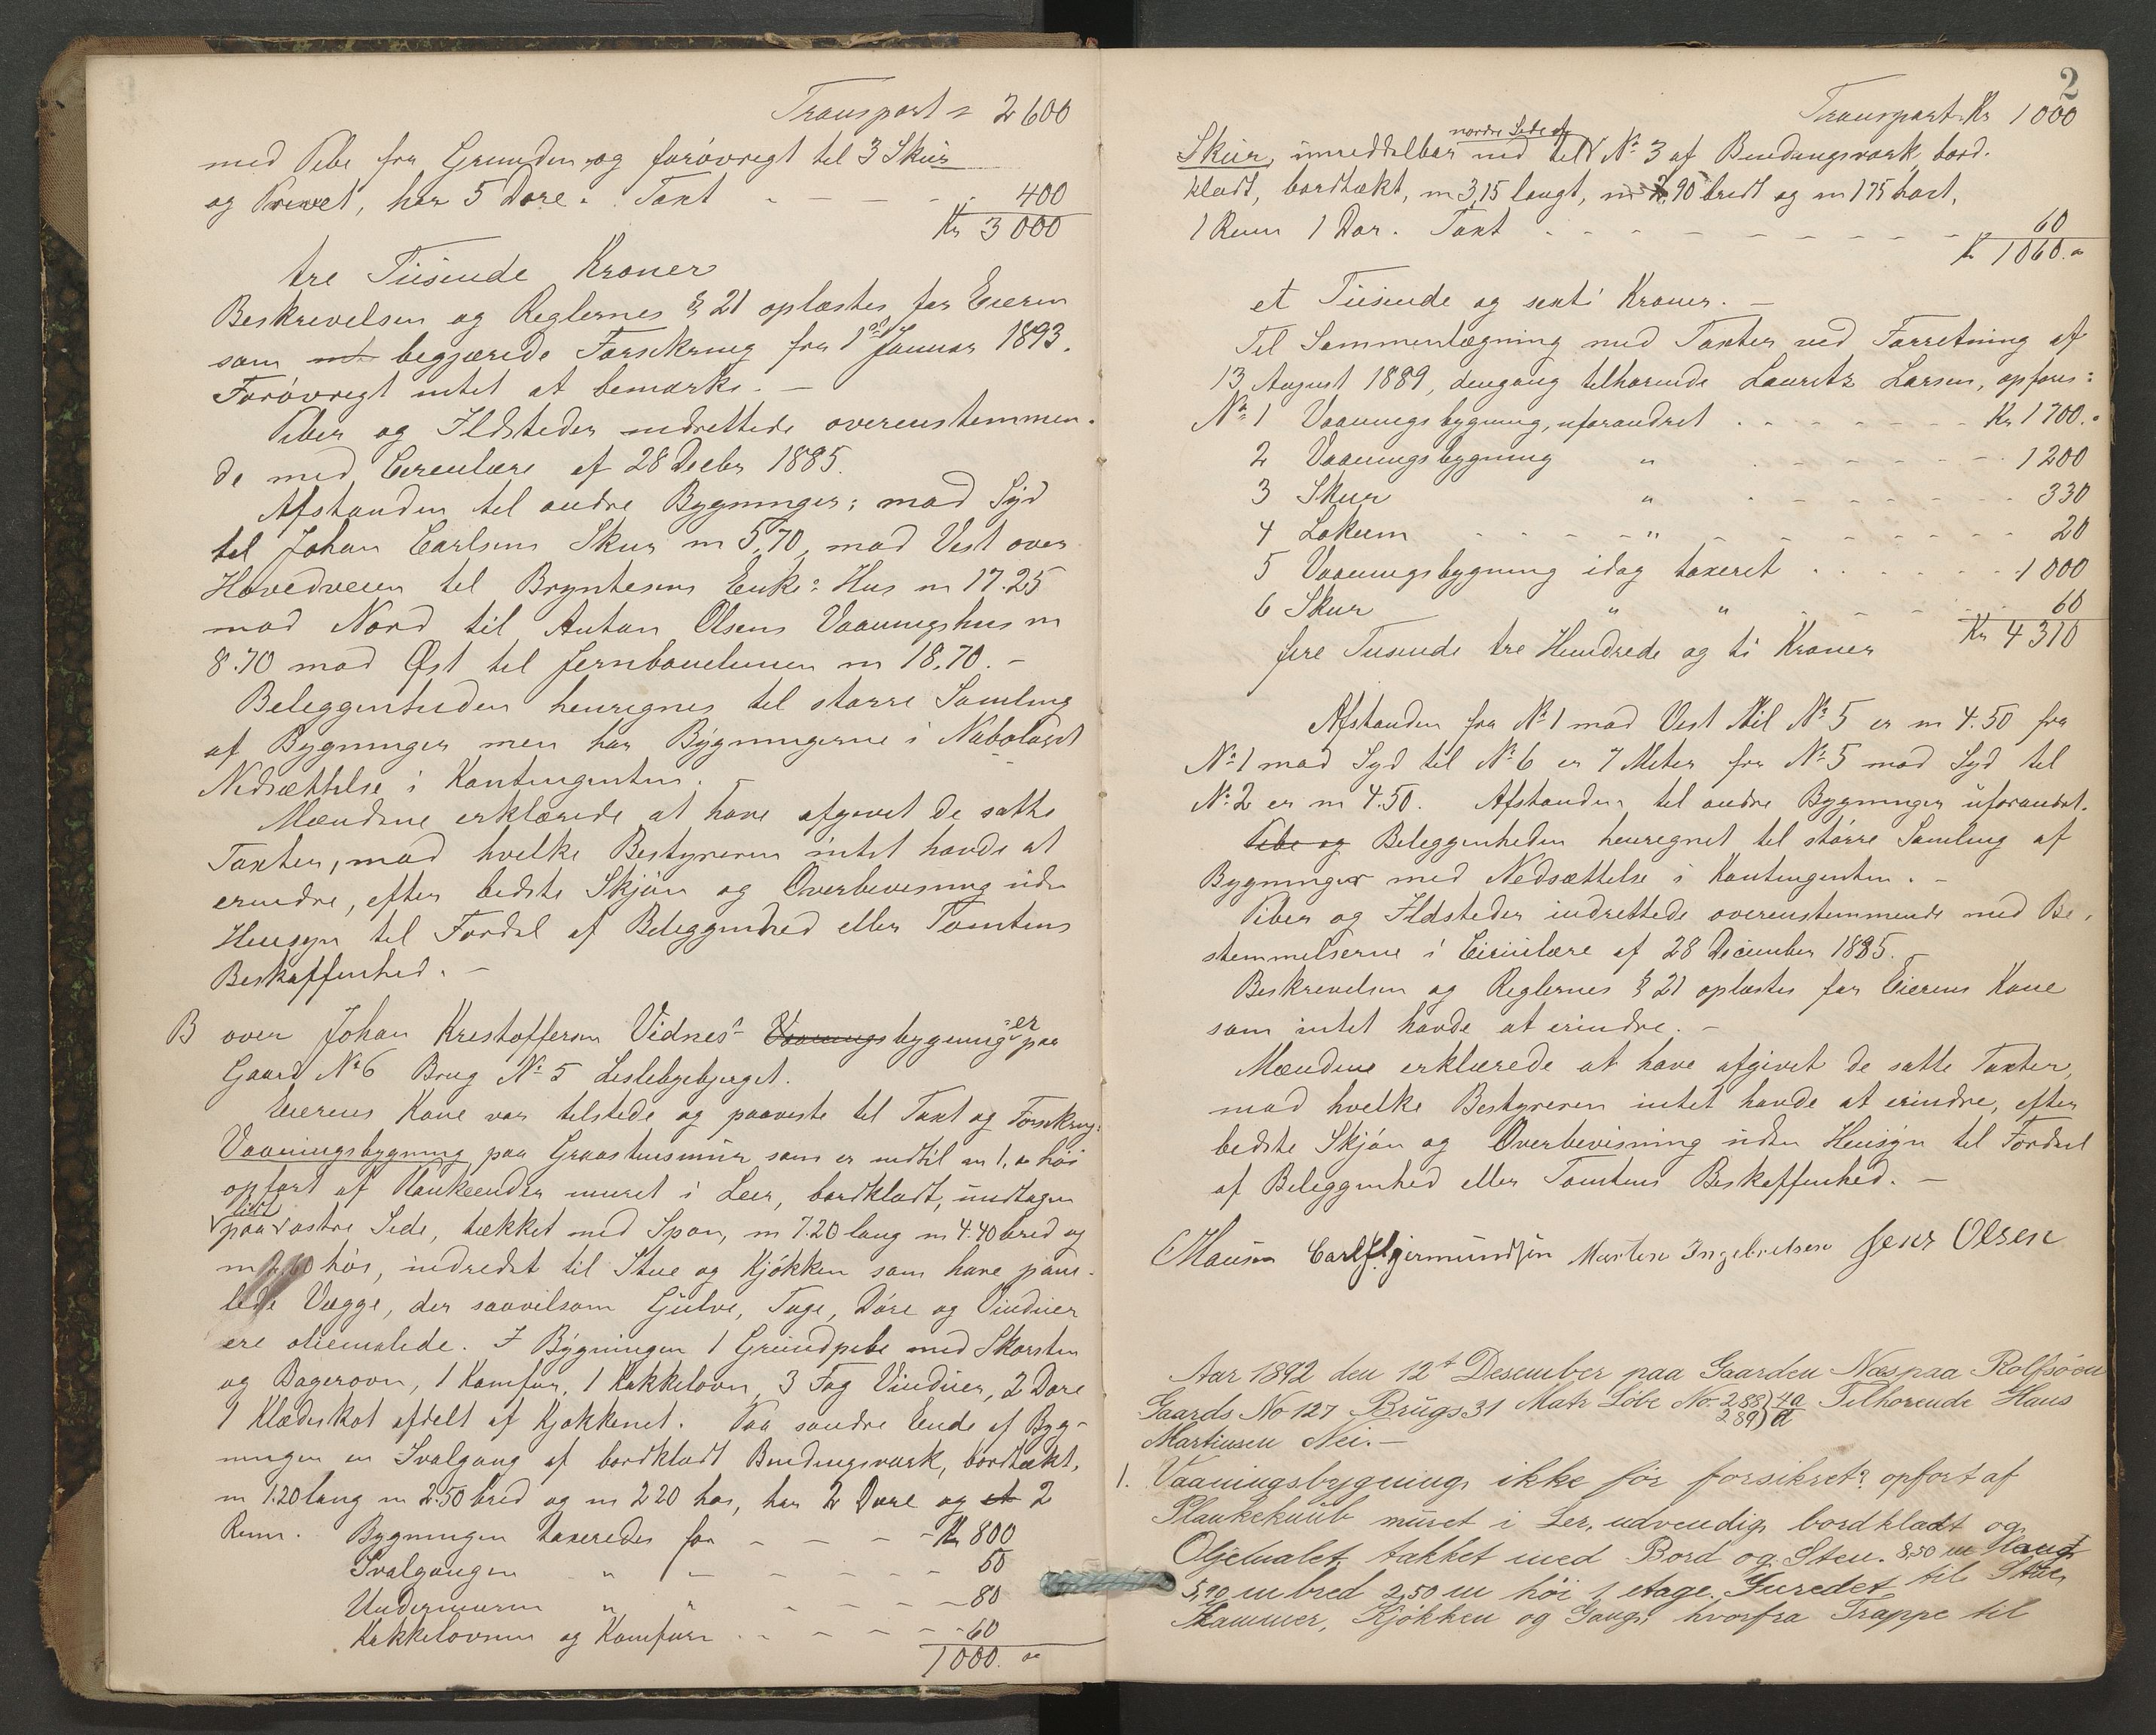 Transport " 2600
med Pibe fra Grunden og forøvrigt til 3 Skur
og Privet, har 5 Døre. Taxt - - - - 400
Kr 3000
tre Tusinde Kroner
Beskrivelsen og Reglernes § 21 oplæstes for Eieren
som begjærede Forsikring fra 1ste Januar 1893.
Forøvrigt intet at bemærke. -
Piber og Ildsteder indrettede overensstemmen-
de med Circulære af 28 Decbr 1885.
Afstanden til andre Bygninger: mod Syd
til Johan Carlsens Skur m 5,70, mod Vest over
Hovedveien til Bryntesens Enke: Hus m 17.25
mod Nord til Anton Olsens Vaaningshus m
8.70 mod Øst til Jernbanelinien m 18.70. -
Beleggenheden henregnes til større Samling
af Bygninger men har Bygningerne i Nabolaget
Nedsættelse i Kontingenten. -
Mændene erklærede at have afgivet de satte
Taxter, mod hvilke Bestyreren intet havde at
erindre, efter bedste Skjøn og Overbevisning uden
Hensyn til Fordel af Beleggenhed eller Tomtens
Beskaffenhed. -
B over Johan Kristoffersen Vidnes' Vaaningsbygning=er paa
Gaard No 6 Brug No 5 Leslebyebjerget.
Eierens Kone var tilstede og paaviste til Taxt og Forsikring:
Vaaningsbygning paa Graastensmur som er indtil m 1, " høi
opført af Plankeender muret i Leer, bordklædt, undtagen
lidt
paa østre Side, tækket med Spon, m 7.20 lang m 4.40 bred og
m 2,60 høi, indredet til Stue og Kjøkken som have pane-
lede Vægge, der saavelsom Gulve, Tage, Døre og Vinduer
ere oliemalede. I Bygningen 1 Grundpibe med Skorsten
og Bagerovn, 1 Komfur, 1 Kakkelovn, 3 Fag Vinduer, 2 Døre
1 Klædeskot afdelt af Kjøkkenet. Paa søndre Ende af Byg-
ningen en Svalgang af bordklædt Bindingsværk, bordtækt,
m 1.20 lang m 2.50 bred og m 2 20 høi, har 2 Døre og et 2
Rum. Bygningen taxeredes for - - - - Kr 800
Svalgangen " " - - - - 50
Undermuren " " - - - - 80
Kakkelovnen og Komfuren - - - - 60
1000. "
2
Transport Kr 1000
nordre Side af
Skur, umiddelbar ind til No 3 af Bindingsværk, bord-
klædt, bordtækt, m 3,15 langt, m 2,90 bredt og m 1 75 høit,
1 Rum 1 Dør. Taxt - - - - - - - - 60
Kr 1060. "
et Tusinde og sexti Kroner. -
Til Sammenlægning med Taxter ved Forretning af
13 August 1889, dengang tilhørende Lauritz Larsen, opføres:
No 1 Vaaningsbygning, uforandret - - - - - - Kr 1700. "
2 Vaaningsbygning " - - - - - 1200
3 Skur " - - - - - - 330
4 Lokum - - - - " - - - - - - 20
5 Vaaningsbygning idag taxeret - - - - - - 1000
6 Skur " " - - - - 60
fire Tusinde tre Hundrede og ti Kroner Kr 4310
Afstanden fra No 1 mod Vest til No 5 er m 4.50 fra
No 1 mod Syd til No 6 er 7 Meter fra No 5 mod Syd til
No 2 er m 4.50. Afstanden til andre Bygninger uforandret.
Pibe og Beleggenheden henregnet til større Samling af
Bygninger med Nedsættelse i Kontingenten. -
Piber og Ildsteder indrettede overensstemmende med Be-
stemmelserne i Circulære af 28 December 1885.
Beskrivelsen og Reglernes § 21 oplæstes for Eierens Kone
som intet havde at erindre. -
Mændene erklærede at have afgivet de satte Taxter,
mod hvilke Bestyreren intet havde at erindre, efter
bedste Skjøn og Overbevisning uden Hensyn til Fordel
af Beleggenhed eller Tomtens Beskaffenhed. -
CHansen Carl Hjermundsen Martin Ingebretsen Jens Olsen
Aar 1892 den 12t Desember paa Gaarden Næs paa Rolfsøen
Gaards No 127 Brugs 31 Matr Løbe No 288) 4a Tilhørende Hans
289)
Martinsen Nei. -
1. Vaaningsbygning, ikke før forsikret: opført af
Plankekub muret i Ler, udvendig bordklædt og
Oljemalet, takket med Bord og Sten. 8,50 m lang
5,90 m bred 2,50 m høi 1 etage. Inredet til Stue,
Kammer, Kjøkken og Gang, hvorfra Trappe til